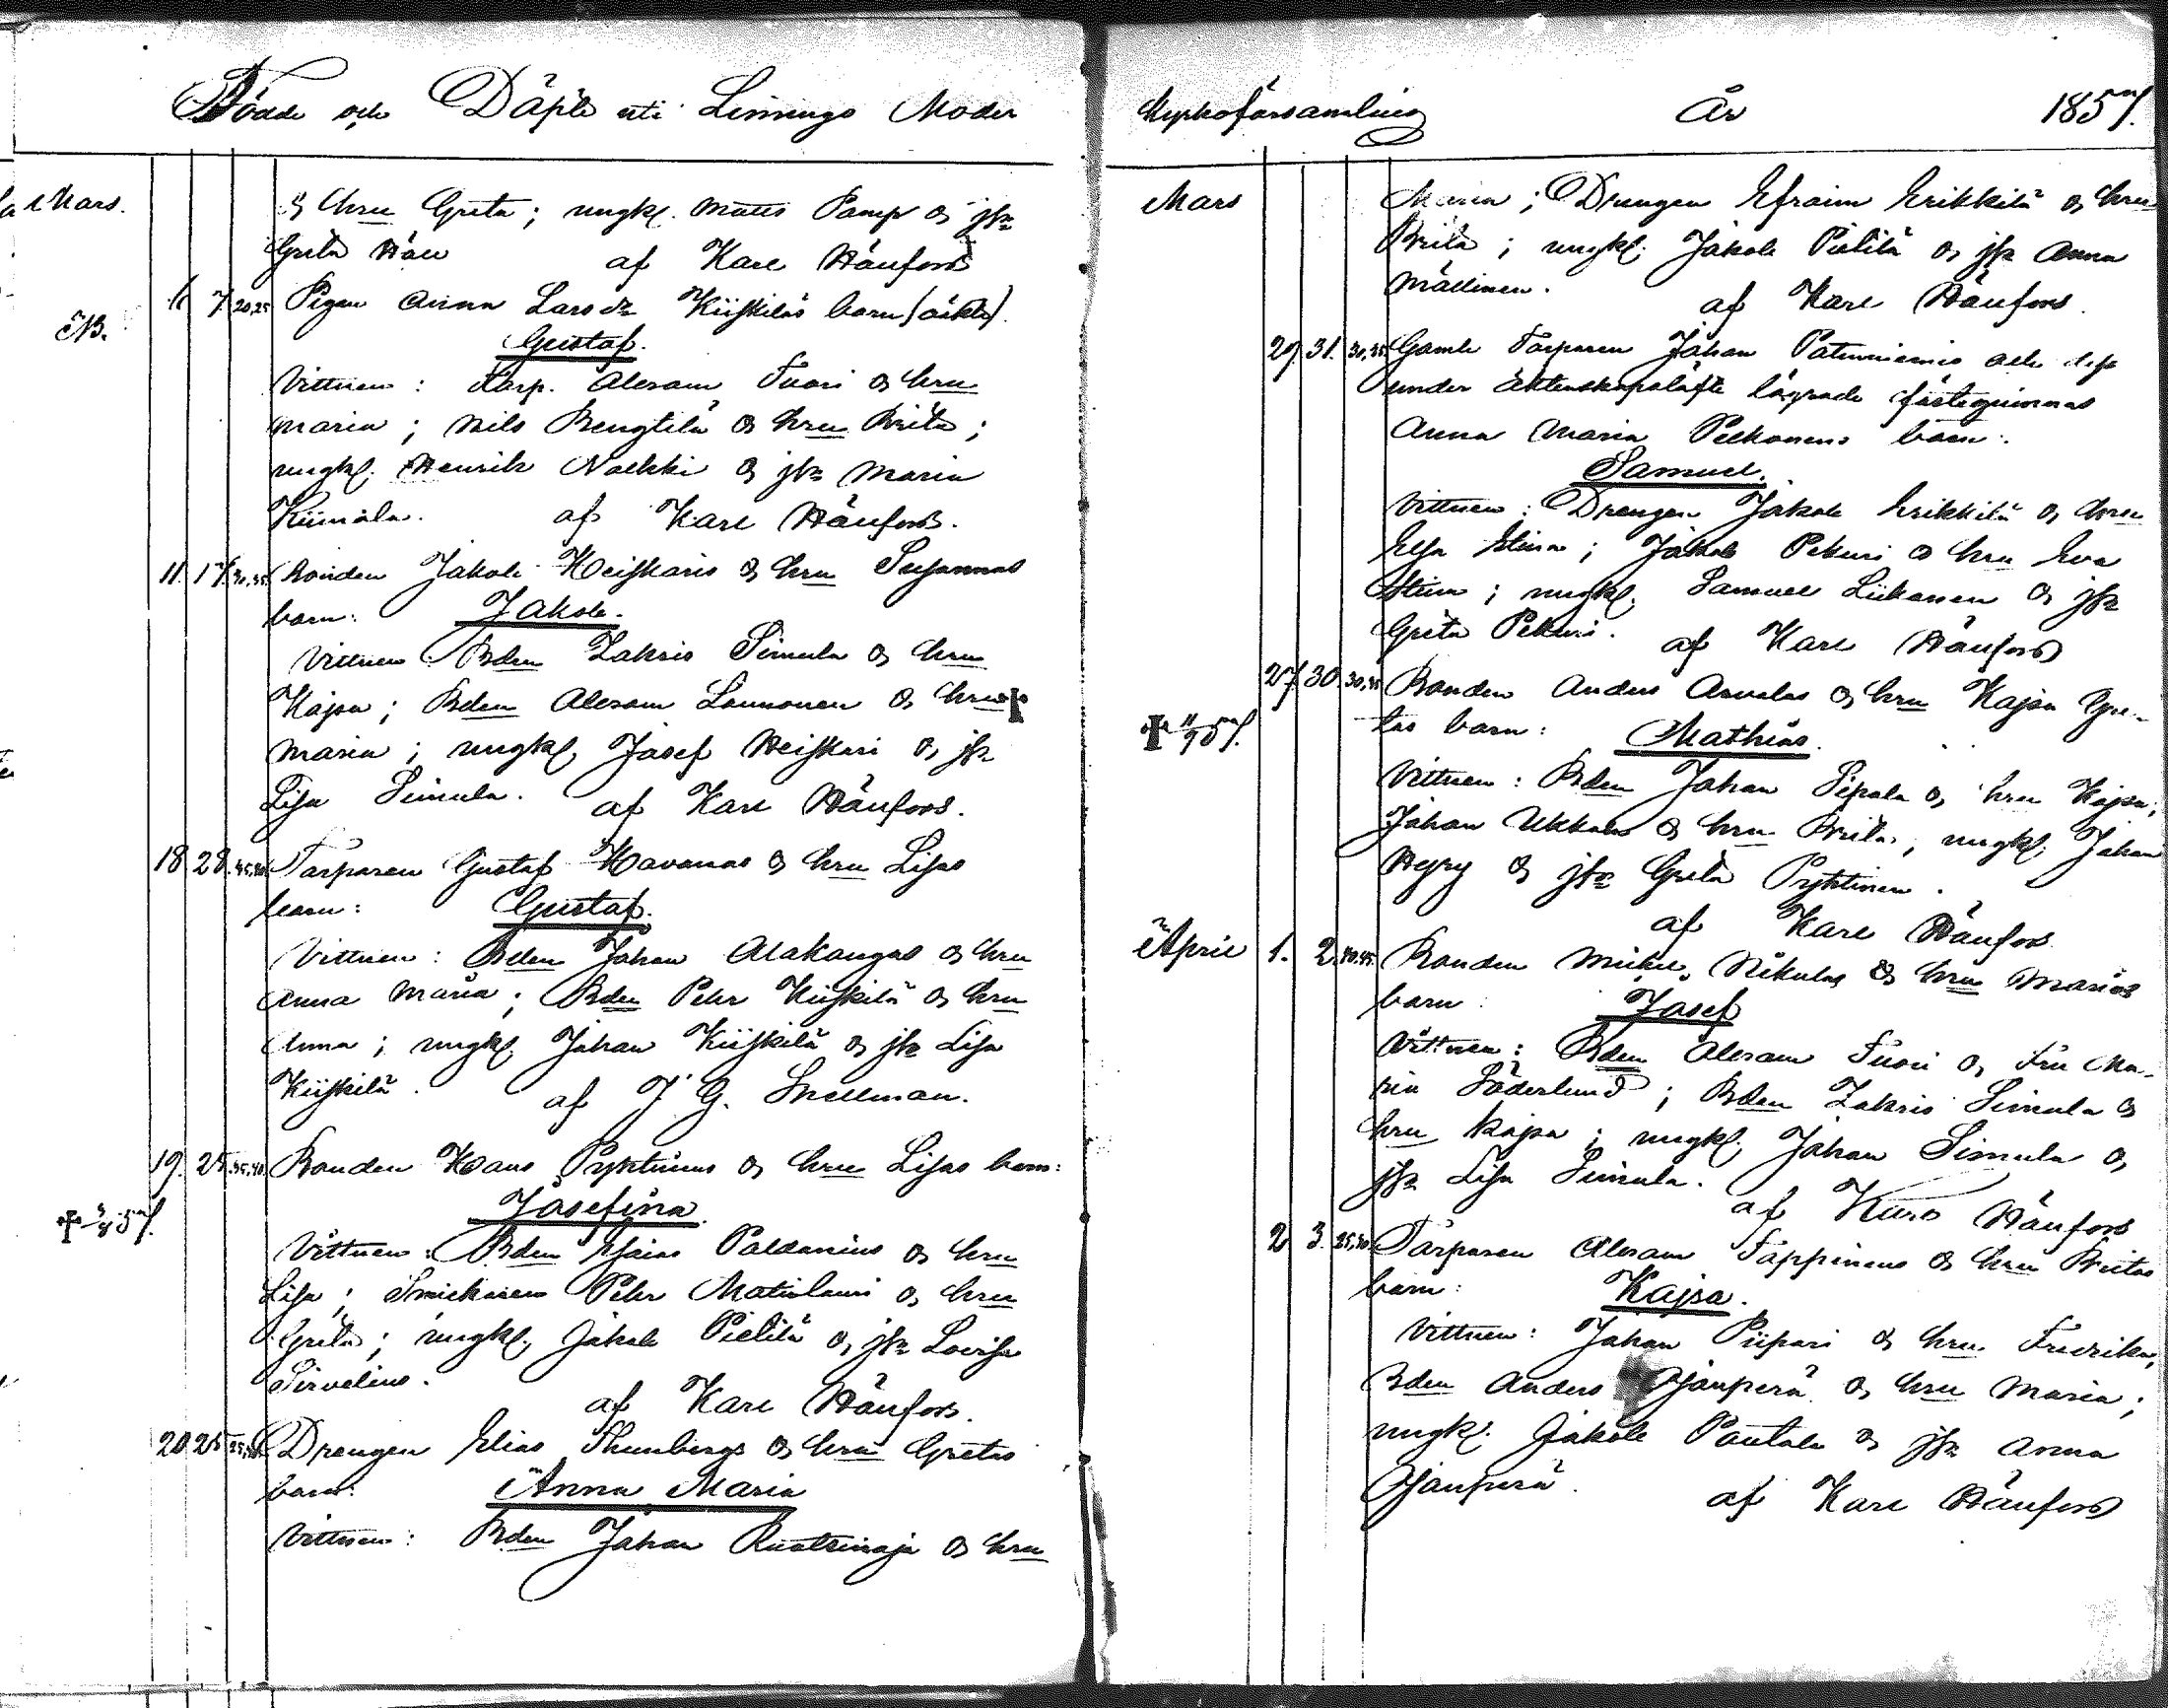 Födde och Döpte uti Limingo Moder
Mars.
& hru Greta; ungkl. Matts Pamp & jfr
Greta af Karl Hånfors
6 7. 20,25 Pigan Anna Larsdr Kiiskiläs barn (oäkta).
NB.
Gustaf.
Vittnen: Torp. Abram Tuori & hru
Maria; Nils Bengtilä & hru Brita;
ungkl. Henrik Nockki & jfr Maria
af Karl Hånfors.
11. 17. 30,35 Bonden Jakob Heiskaris & hru Susannas
barn: Jakob.
Vittnen Bden Zakris Simula & hru
Kajsa; Bden Abram Lounonen & hru
Maria; ungkl. Josef Heiskari & jfr
Lisa Simula. af Karl Hånfors.
18 28. 35,40 Torparen Gustaf Havanas & hru Lisas
barn: Gustaf.
Vittnen: Bden Johan Alakangas & hru
Anna Maria; Bden Petr Kiiskilä & hru
Anna; ungkl. Johan Kiiskilä & jfr Lisa
Kiiskilä. af J G. Snellman.
19. 25. 35,40 Bonden Hans Pyktinens & hru Lisas barn:
Josefina.
† 3/4 57.
Vittnen: Bden Esaias Paldanius & hru
Lisa; Snickaren Petr Matinlauri & hru
Greta; ungkl. Jakob Pietilä & jfr Lovisa
Sirvelius.
af Karl Hånfors.
20 25 Drengen Elias Thunbergs & hru Gretas
barn: Anna Maria
Vittnen: Bden Johan Ruotsinoja & hru
Kyrkoförsamling År 1857.
Mars
Maria; Drengen Efraim Erikkilä & hru
Brita; ungkl. Jakob Pietilä & jfr Anna
Mällinen. af Karl Hånfors.
29. 31. 30,35 Gamle Torparen Johan Patuniemis och dess
under äktenskapslöfte lägrade fästeqvinnas
Anna Maria Pelkonens barn:
Samuel.
Vittnen: Drengen Jakob Erikkilä & hru
Elsa Stina; Jakob Pekuri & hru Eva
Stina; ungkl. Samuel Liikanen & jfr
Greta Pekuri. af Karl Hånfors
27. 30. 30,35 Bonden Anders Arvolas & hru Kajsa Gre-
tas barn: Mathias.
† 57.
Vittnen: Bden Johan Sipola & hru Kajsa;
Johan Ukkola & hru Brita; ungkl. Johan
Hyry & jfr Greta Pyktinen.
af Karl Hånfors
April 1. 2. 40,45 Bonden Mickel Nikulas & hru Marias
barn: Josef
Vittnen: Bden Abram Tuori & Fru Ma-
ria Söderlund; Bden Zakris Simula &
hru Kajsa; ungkl. Johan Simula &
jfr Lisa Simula.
af Karl Hånfors
2 3. 25,30 Torparen Abram Tappinens & hru Britas
barn: Kajsa.
Vittnen: Johan Piipari & hru Fredrika,
Bden Anders Ojanperä & hru Maria;
ungkl. Jakob Pantala & jfr Anna
Ojanperä. af Karl Hånfors